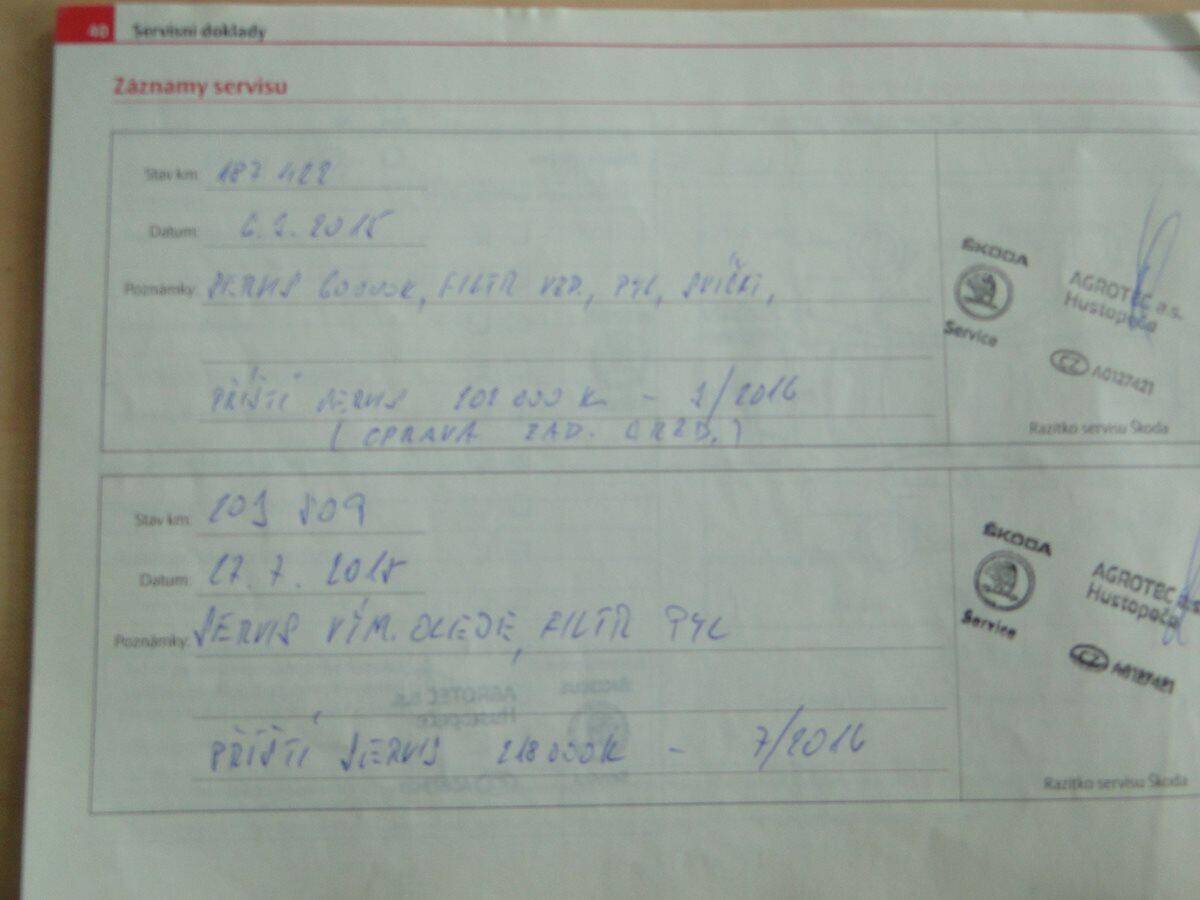 40 Servisní doklady
Záznamy servisu
Stav km: 187 422
Datum: 6.2.2015
Poznámky: SERVIS 60000K, FILTR VZD., PYL, SVÍČKY,
PŘÍŠTÍ SERVIS 202 000 K - 2/2016
(OPRAVA ZAD. BRZD.)
ŠKODA
Service
AGROTEC a.s.
Hustopeče
CZ A0127421
Razítko servisu Škoda
Stav km: 203 809
Datum: 27.7.2015
Poznámky: SERVIS VÝM. OLEJE, FILTR PYL
PŘÍŠTÍ SERVIS 218 000K - 7/2016
ŠKODA
Service
AGROTEC a.s.
Hustopeče
CZ
Razítko servisu Škoda